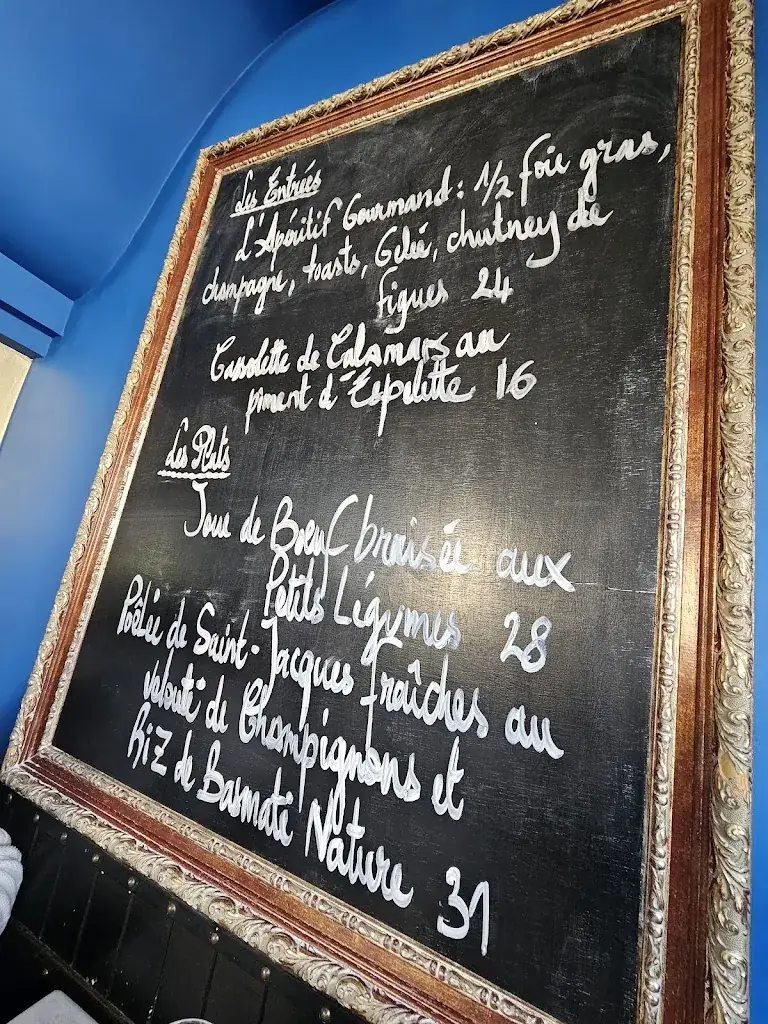 Les Entrées
L'Apéritif Gourmand : 1/2 foie gras,
champagne, toasts, Gelée, chutney de
figues 24
Cassolette de Calamars au
piment d'Espelette 16
Les Plats
Joue de Boeuf braisée aux
Petits Légumes 28
Poêlée de Saint-Jacques fraîches au
velouté de Champignons et
Riz de Basmati Nature 31